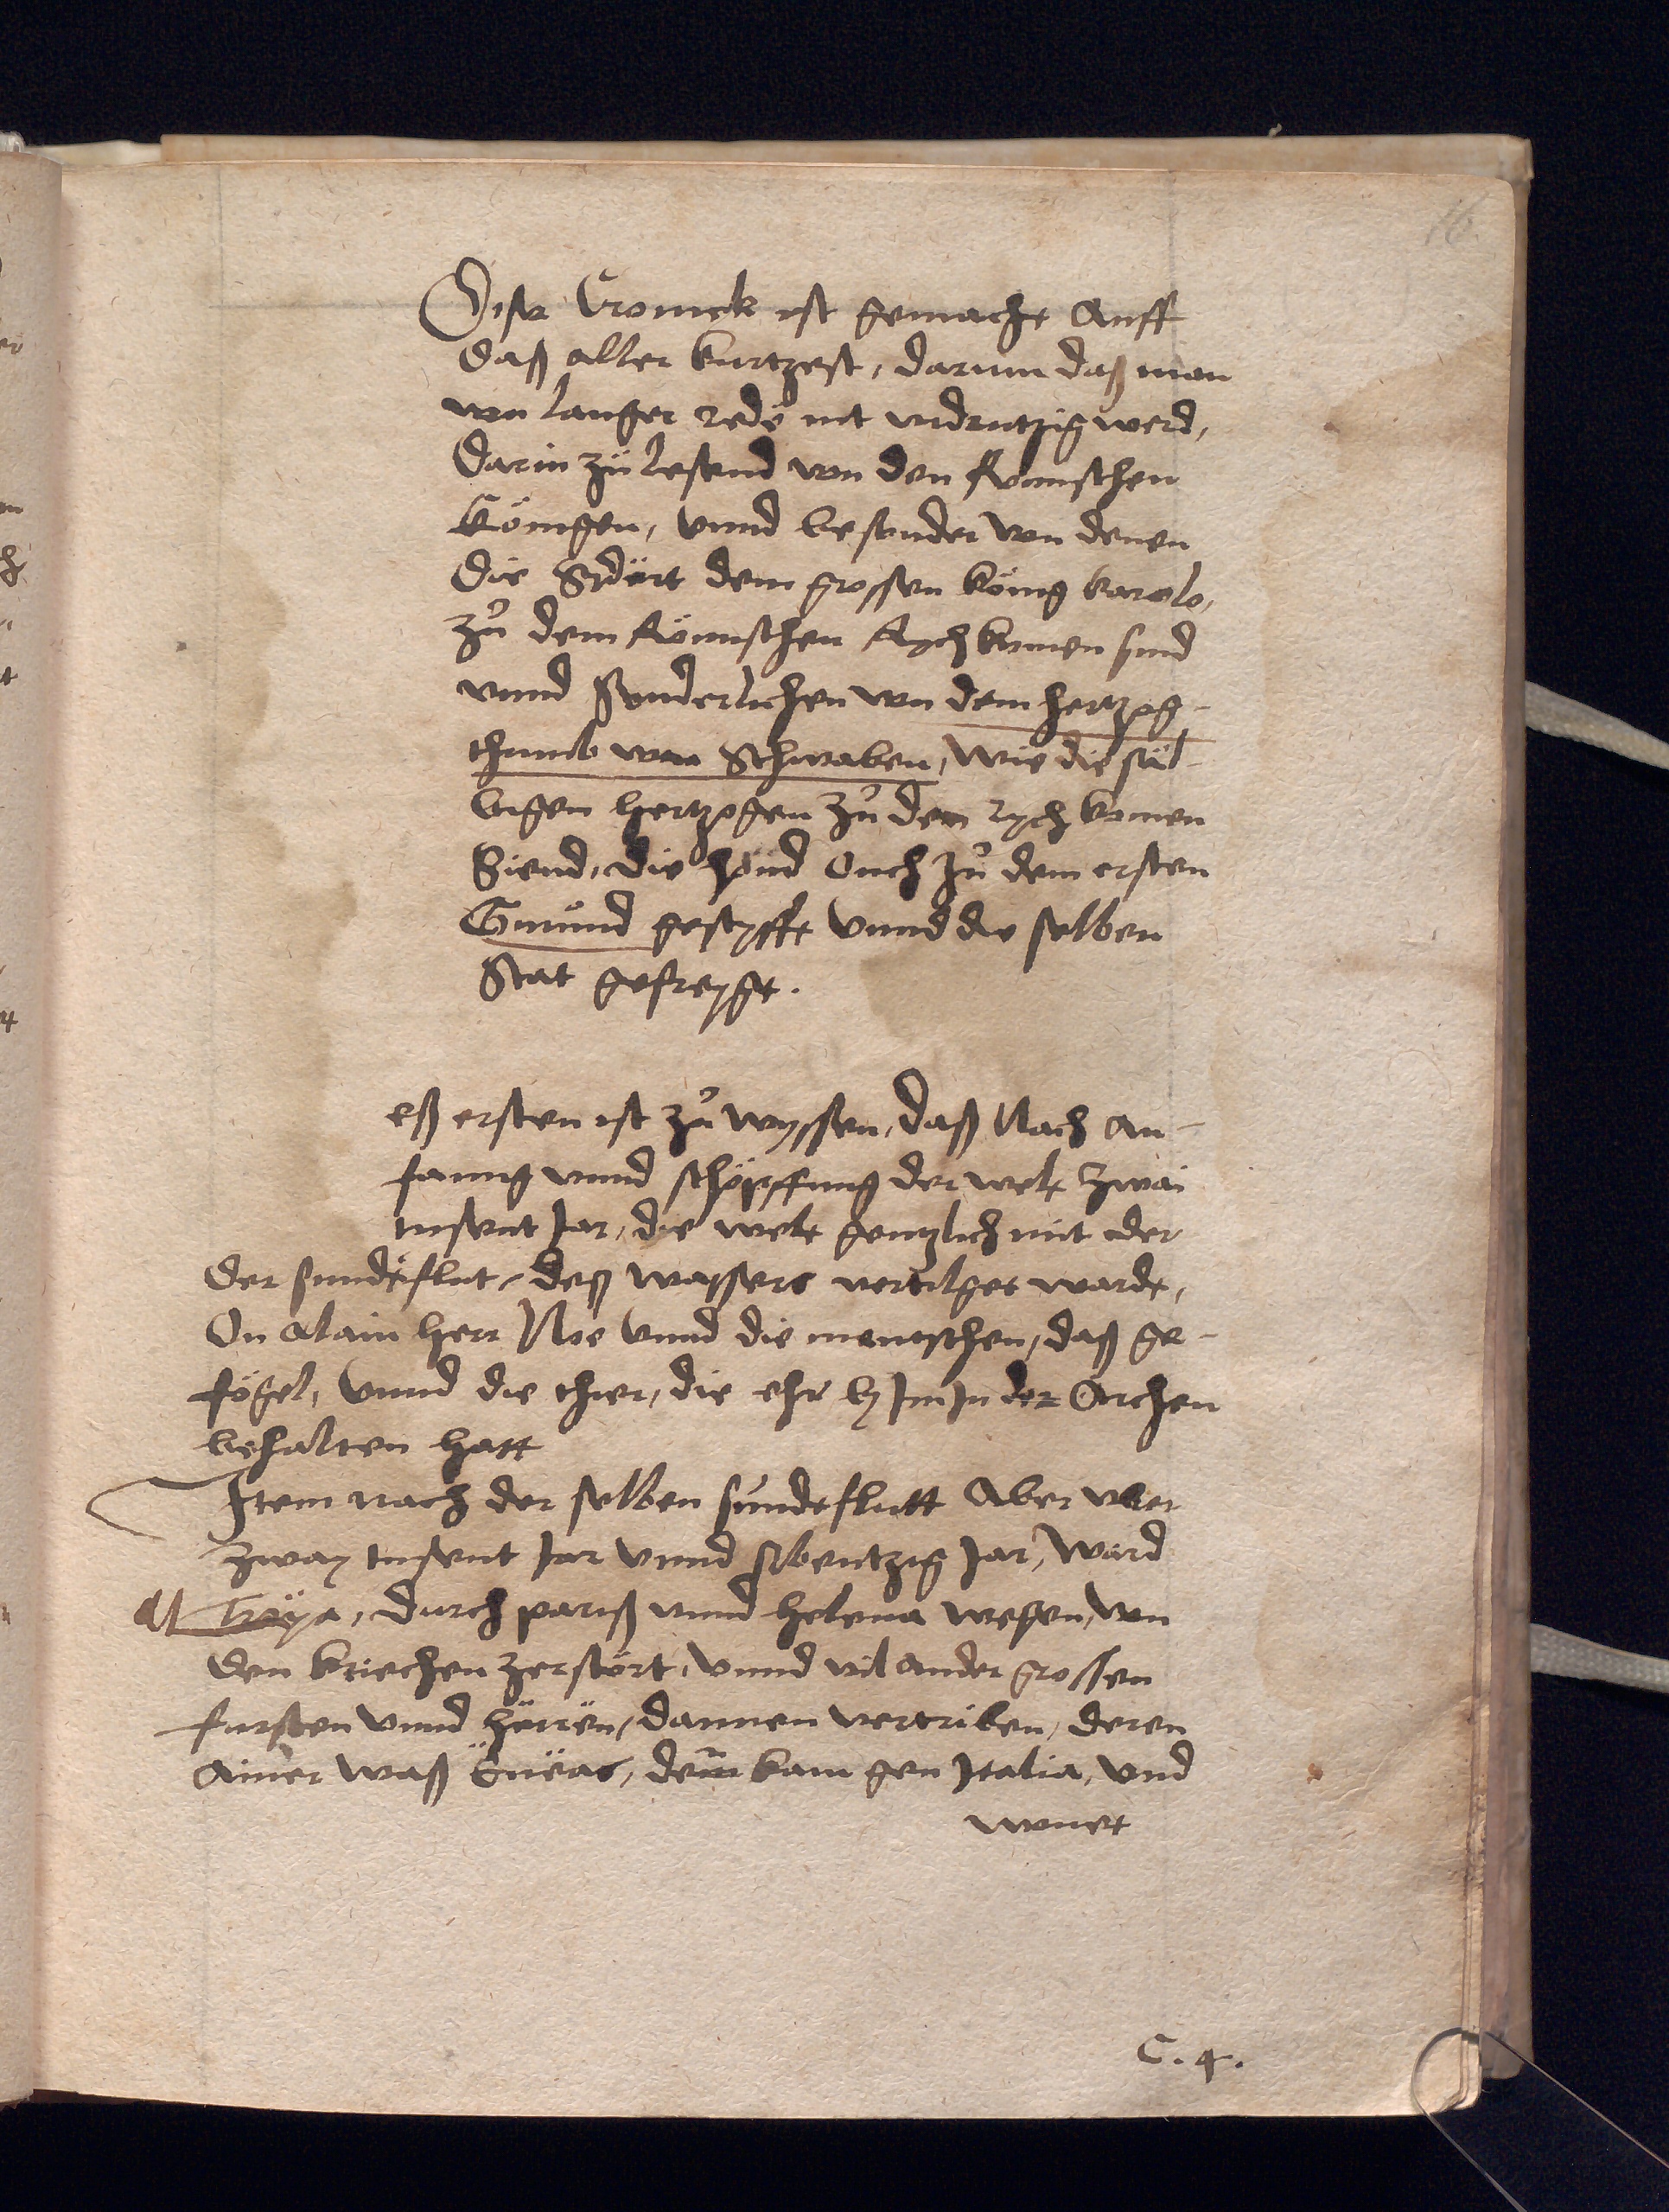 16.
Dise Cronick ist gemacht Auff
daß aller kurtzest, darum daß man
von langer rede nit vrdrutzig werd,
Darin zü lesend von den Romschen
Königen, vnnd besonder von denen
Die Sydërt dem grossen köng karolo,
zů dem Römschen Rych komen sind
vnnd Sonderlichen von dem hertzog-
thumb von Schwaben, Wie die säl-
bigen hertzogen zů dem rych komen
Siend, die hond Ouch zů dem ersten
Gmünd gestyfft vnnd die selben
Stat gefreygt.
eß ersten ist zů wyssen, daß Nach an-
fanng vnnd schöpffung der welt zwai
tusent Jar, die welt gentzlich mit der
der sundëflut, deß wassers vertilget wardt,
On alain herr Noe vnnd die menschen, daß ge-
fögel, vnnd die thier, die ehr by Im In der Archen
behalten hatt
Item nach der selben sündeflutt Aber vber
zway tusent Jar vnnd sibentzig Jar, ward
Troya, durch pariß vnnd helena wegen, von
den kriechen zerstört, vnnd vil ander grossen
fursten vnnd hërrën, dannen vertriben, deren
Ainer waß Ënëas, dem kam gen Italia, vnd
wonet
C. 4.